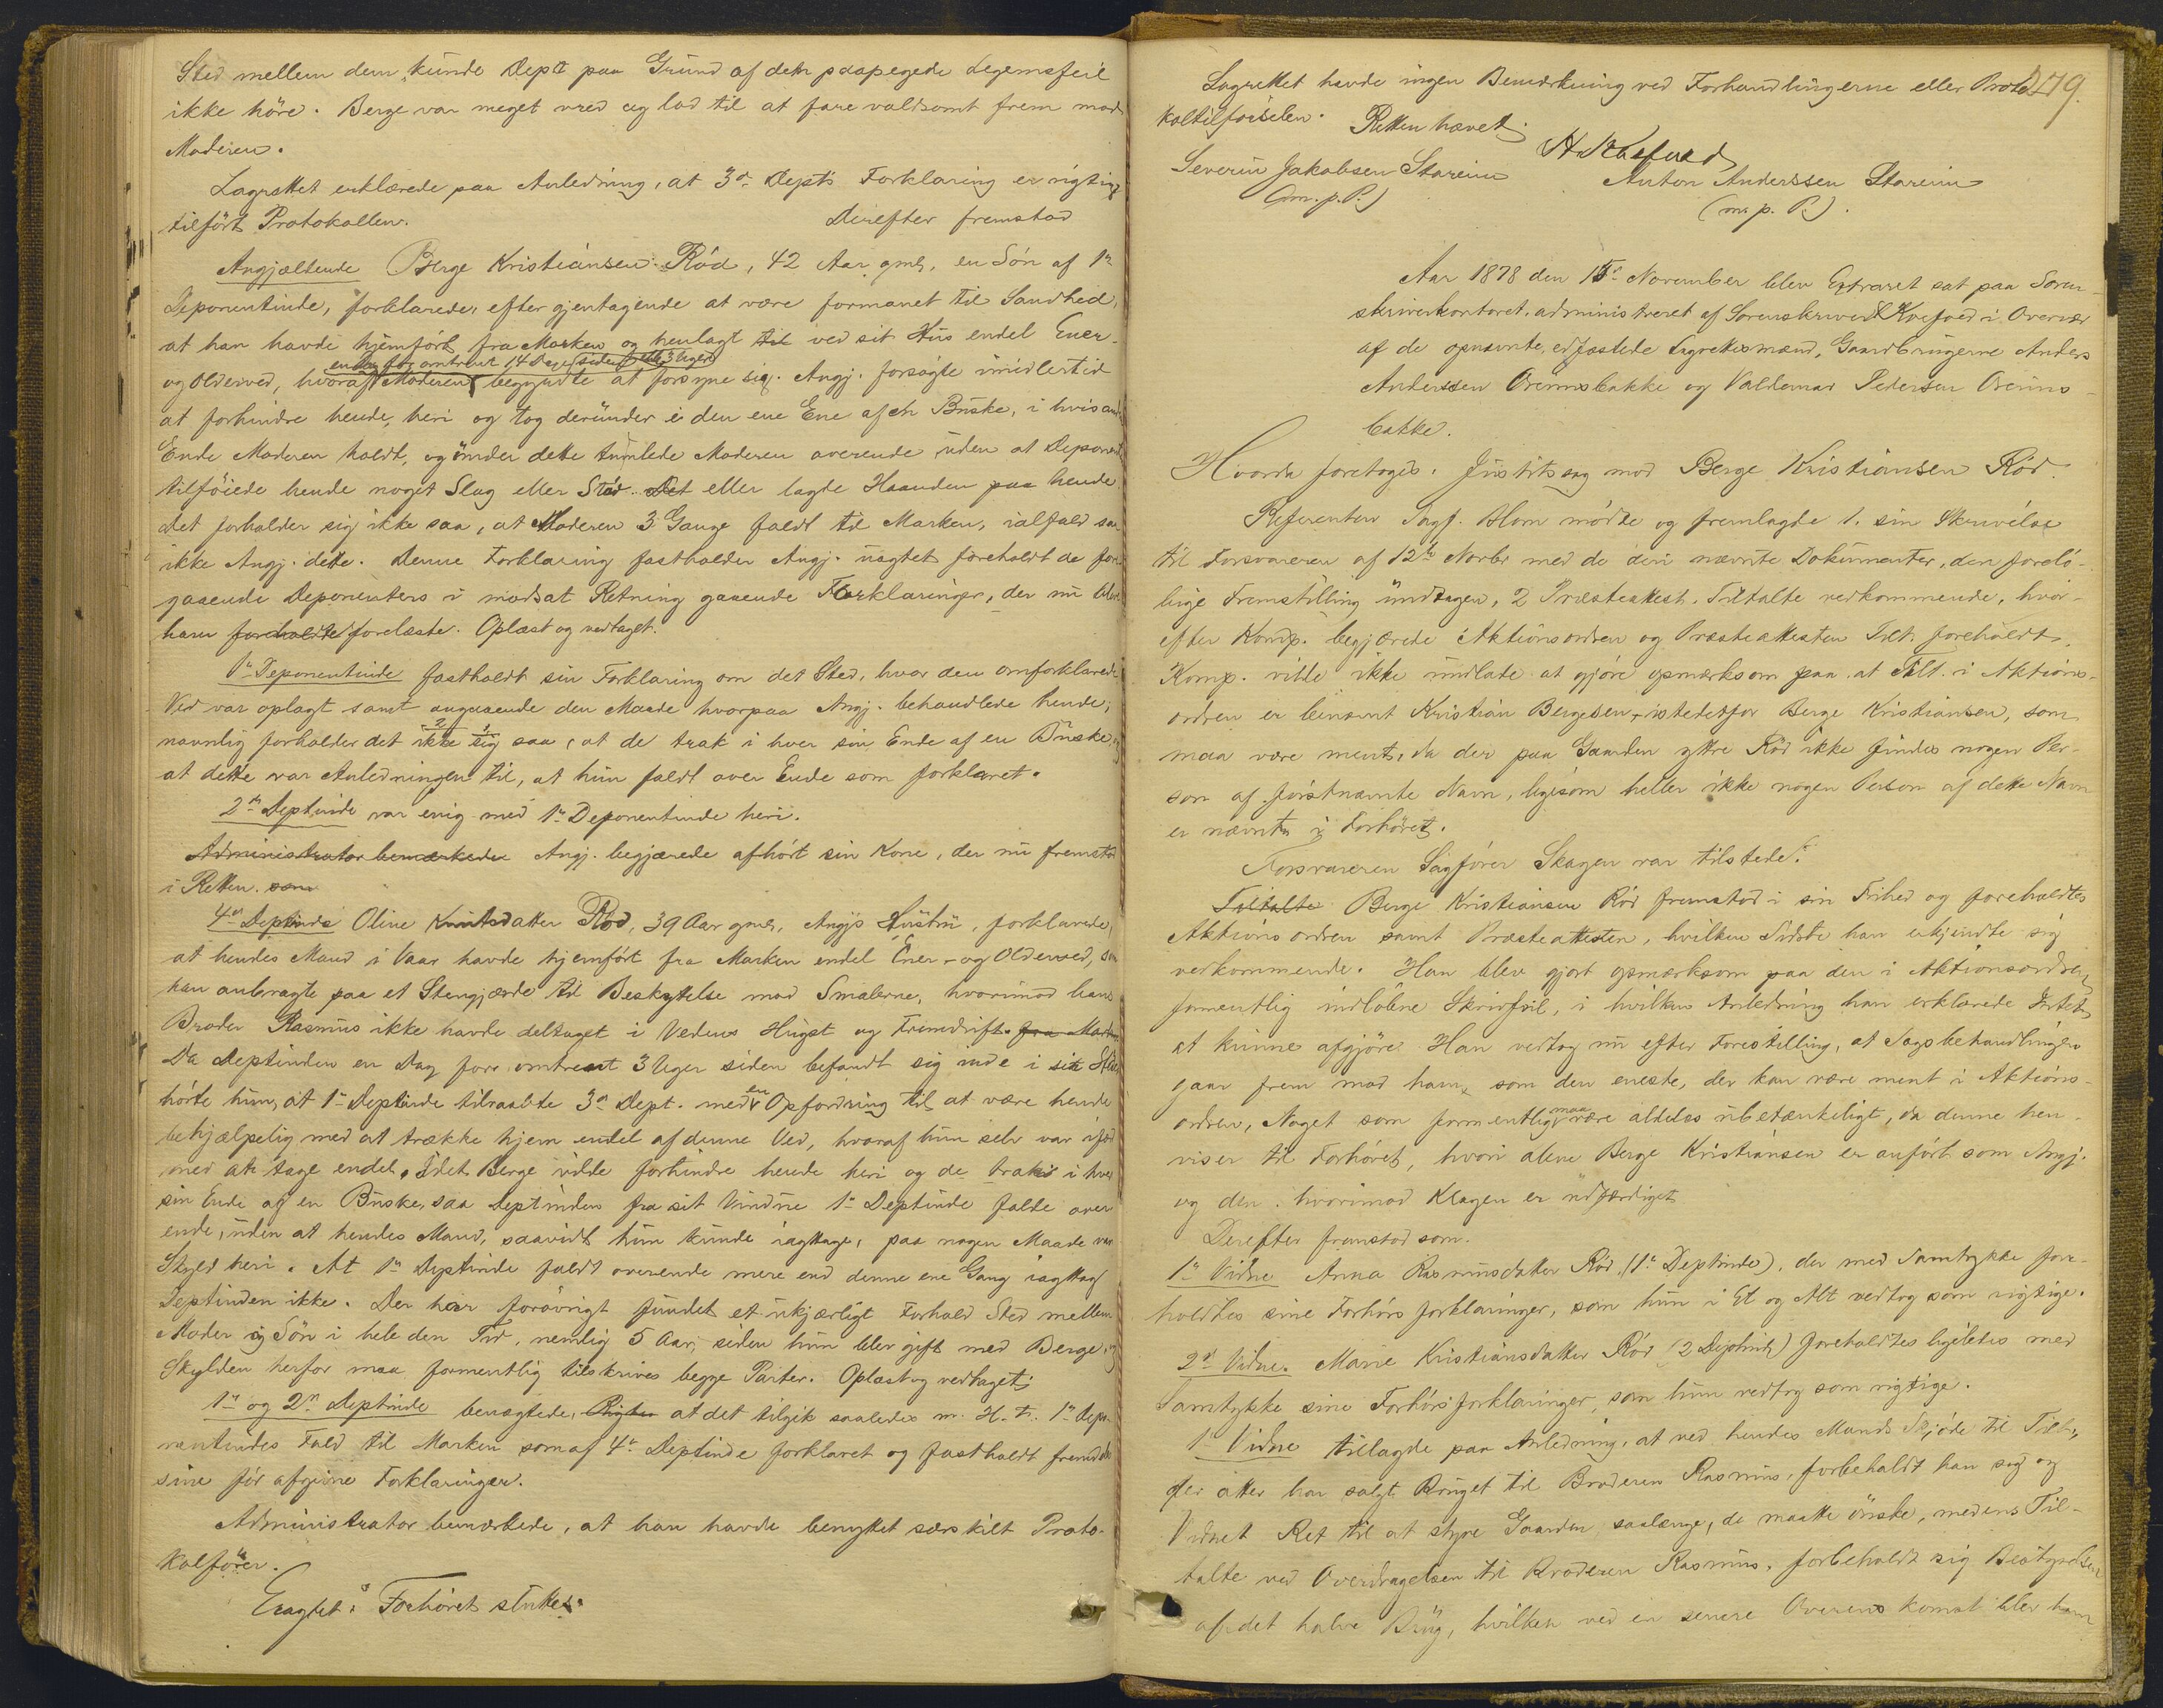 Sted mellem dem kunde Dept paa Grund af den paapegede Legemsfeil
ikke høre. Berge var meget vred og lod til at fare voldsomt frem mod
Moderen.
Lagrettet erklærede paa Anledning, at 3die Dept's Forklaring er rigtig
tilført Protokollen. Derefter fremstod
Angjældende Berge Kristiansen Rød, 42 Aar gml, en Søn af 1ste
Deponentinde, forklarede, efter gjentagende at være formanet til Sandhed,
at han havde hjemført fra Marken og henlagt til ved sit Hus endel Ener-
en Dag for omtrent 14 Dage siden eller 3 Uger
og Olderved, hvoraf Moderen begyndte at forsyne sig. Angj. forsøgte imidlertid
at forhindre hende heri og tog derunder i den ene Ene af en Buske, i hvis anden
Ende Moderen holdt, og under dette tumlede Moderen overende uden at Deponent
tilføiede hende noget Slag eller Stød. Det eller lagde Haanden paa hende.
Det forholder sig ikke saa, at Moderen 3 Gange faldt til Marken, ialfald saa
ikke Angj. dette. Denne Forklaring fastholder Angj. uagtet foreholdt de fore
gaaende Deponenters i modsat Retning gaaende Forklaringer, der nu blev
ham foreholdte forelæste. Oplæst og vedtaget.
1ste Deponentinde fastholdt sin Forklaring om det Sted, hvor den omforklarede
Ved var oplagt samt angaaende den Maade hvorpaa Angj. behandlede hende;
navnlig forholder det ikke sig saa, at de trak i hver sin Ende af en Buske, og
at dette var Anledningen til, at hun faldt over Ende som forklaret.
2den Deptinde var enig med 1ste Deponentinde heri.
Administrator bemærkede Angj. begjærede afhørt sin Kone, der nu fremstod
i Retten. som
4de Deptinde Oline Knutsdatter Rød, 39 Aar gml, Angj's Hustru, forklarede,
at hendes Mand i Vaar havde hjemført fra Marken endel Ener- og Olderved, som
han anbragte paa et Stengjærde til Beskyttelse mod Smalerne, hvorimod hans
Broder Rasmus ikke havde deltaget i Vedens Hugst og Fremdrift fra Marken
Da Deptinden en Dag for omtrent 3 Uger siden befandt sig inde i sit Hus
hørte hun, at 1ste Deptinde tilraabte 3die Dept. med en Opfordring til at være hende
behjælpelig med at trække hjem endel af denne Ved, hvoraf hun selv var ifærd
med at tage endel. Idet Berge vilde forhindre hende heri og de trak i hver
sin Ende af en Buske, saa Deptinden fra sit Vindue 1ste Deptinde falde over
ende, uden at hendes Mand, saavidt hun kunde iagttage, paa nogen Maade var
Skyld heri. At 1ste Deptinde faldt overende mere end denne ene Gang iagttog
Deptinden ikke. Der har forøvrigt fundet et ukjærligt Forhold Sted mellem
Moder og Søn i hele den Tid, nemlig 5 Aar, siden hun blev gift med Berge, og
Skylden herfor maa formentlig tilskrives begge Parter. Oplæst og vedtaget.
1ste og 2den Deptinde benægtede, at det tilgik saaledes m. H. t. 1ste Depo-
nentindes Fald til Marken som af 4de Deptinde forklaret og fastholdt fremdeles
sine før afgivne Forklaringer.
Administrator bemærkede, at han havde benyttet særskilt Proto-
kolfører.
Eragtet: Forhøret sluttes.
Lagrettet havde ingen Bemærkning ved Forhandlingerne eller Proto- 179.
koltilførselen. Retten hævet.
Severin Jakobsen Starein Anton Anderssen Starein
(m. p. P.) (m. p. P.).
Aar 1878 den 15de November blev Extraret sat paa Soren-
skriverkontoret, administreret af Sorenskriver Koefoed i Overvær
af de opnævnte, edfæstede Lagrettesmænd, Gaardbrugerne Anders
Anderssen Orernsbakke og Valdemar Pedersen Orerns-
bakke.
Hvorda foretoges. Justitssag mod Berge Kristiansen Rød.
Referenten Sagf. Blom mødte og fremlagde 1. sin Skrivelse
til Forsvareren af 12te Novbr med de deri nævnte Dokumenter, den foreløbi-
lige Fremstilling undtagen, 2 Præsteattest. Tiltalte vedkommende, hvor-
efter Komp. begjærede Aktionsordren og Præsteattesten Tilt. foreholdt.
Komp. vilde ikke undlate at gjøre opmærksom paa at Tilt. i Aktions-
ordren er benævnt Kristian Bergesen, istedetfor Berge Kristiansen, som
maa være ment, da der paa Gaarden ytre Rød ikke findes nogen Per-
son af førstnævnte Navn, ligesom heller ikke nogen Person af dette Navn
er nævnt i Forhøret.
Forsvareren Sagfører Skagen var tilstede.
Tiltalte Berge Kristiansen Rød fremstod i sin Frihed og foreholdtes
Aktionsordren samt Præsteattesten, hvilken Sidste han erkjendte sig
vedkommende. Han blev gjort opmærksom paa den i Aktionsordren
formentlig indløbne Skrivfeil, i hvilken Anledning han erklærede Intet
at kunne afgjøre. Han vedtog nu efter Forestilling, at Sagsbehandlingen
gaar frem mod ham, som den eneste, der kan være ment i Aktions-
ordren, Noget som formentlig maa være aldeles ubetænkeligt, da denne hen-
viser til Forhøret, hvori alene Berge Kristiansen er anført som Angj.
og den hvorimod Klagen er udfærdiget.
Derefter fremstod som.
1ste Vidne Anna Rasmusdatter Rød, (1ste Deptinde), der med Samtykke fore-
holdtes sine Forhørsforklaringer, som hun i Et og Alt vedtog som rigtige.
2det Vidne. Marie Kristiansdatter Rød (2 Deptinde) foreholdtes ligeledes med
Samtykke sine Forhørsforklaringer, som hun vedtog som rigtige.
1ste Vidne tillagde paa Anledning, at ved hendes Mands Skjøde til Tilt.,
der atter har solgt Bruget til Broderen Rasmus, forbeholdt han sig og
Vidnet Ret til at styre Gaarden saalænge, de maatte ønske, medens Til-
talte ved Overdragelsen til Broderen Rasmus, forbeholdt sig Bestyrelsen
af det halve Brug, hvilken ved en senere Overenskomst blev ham